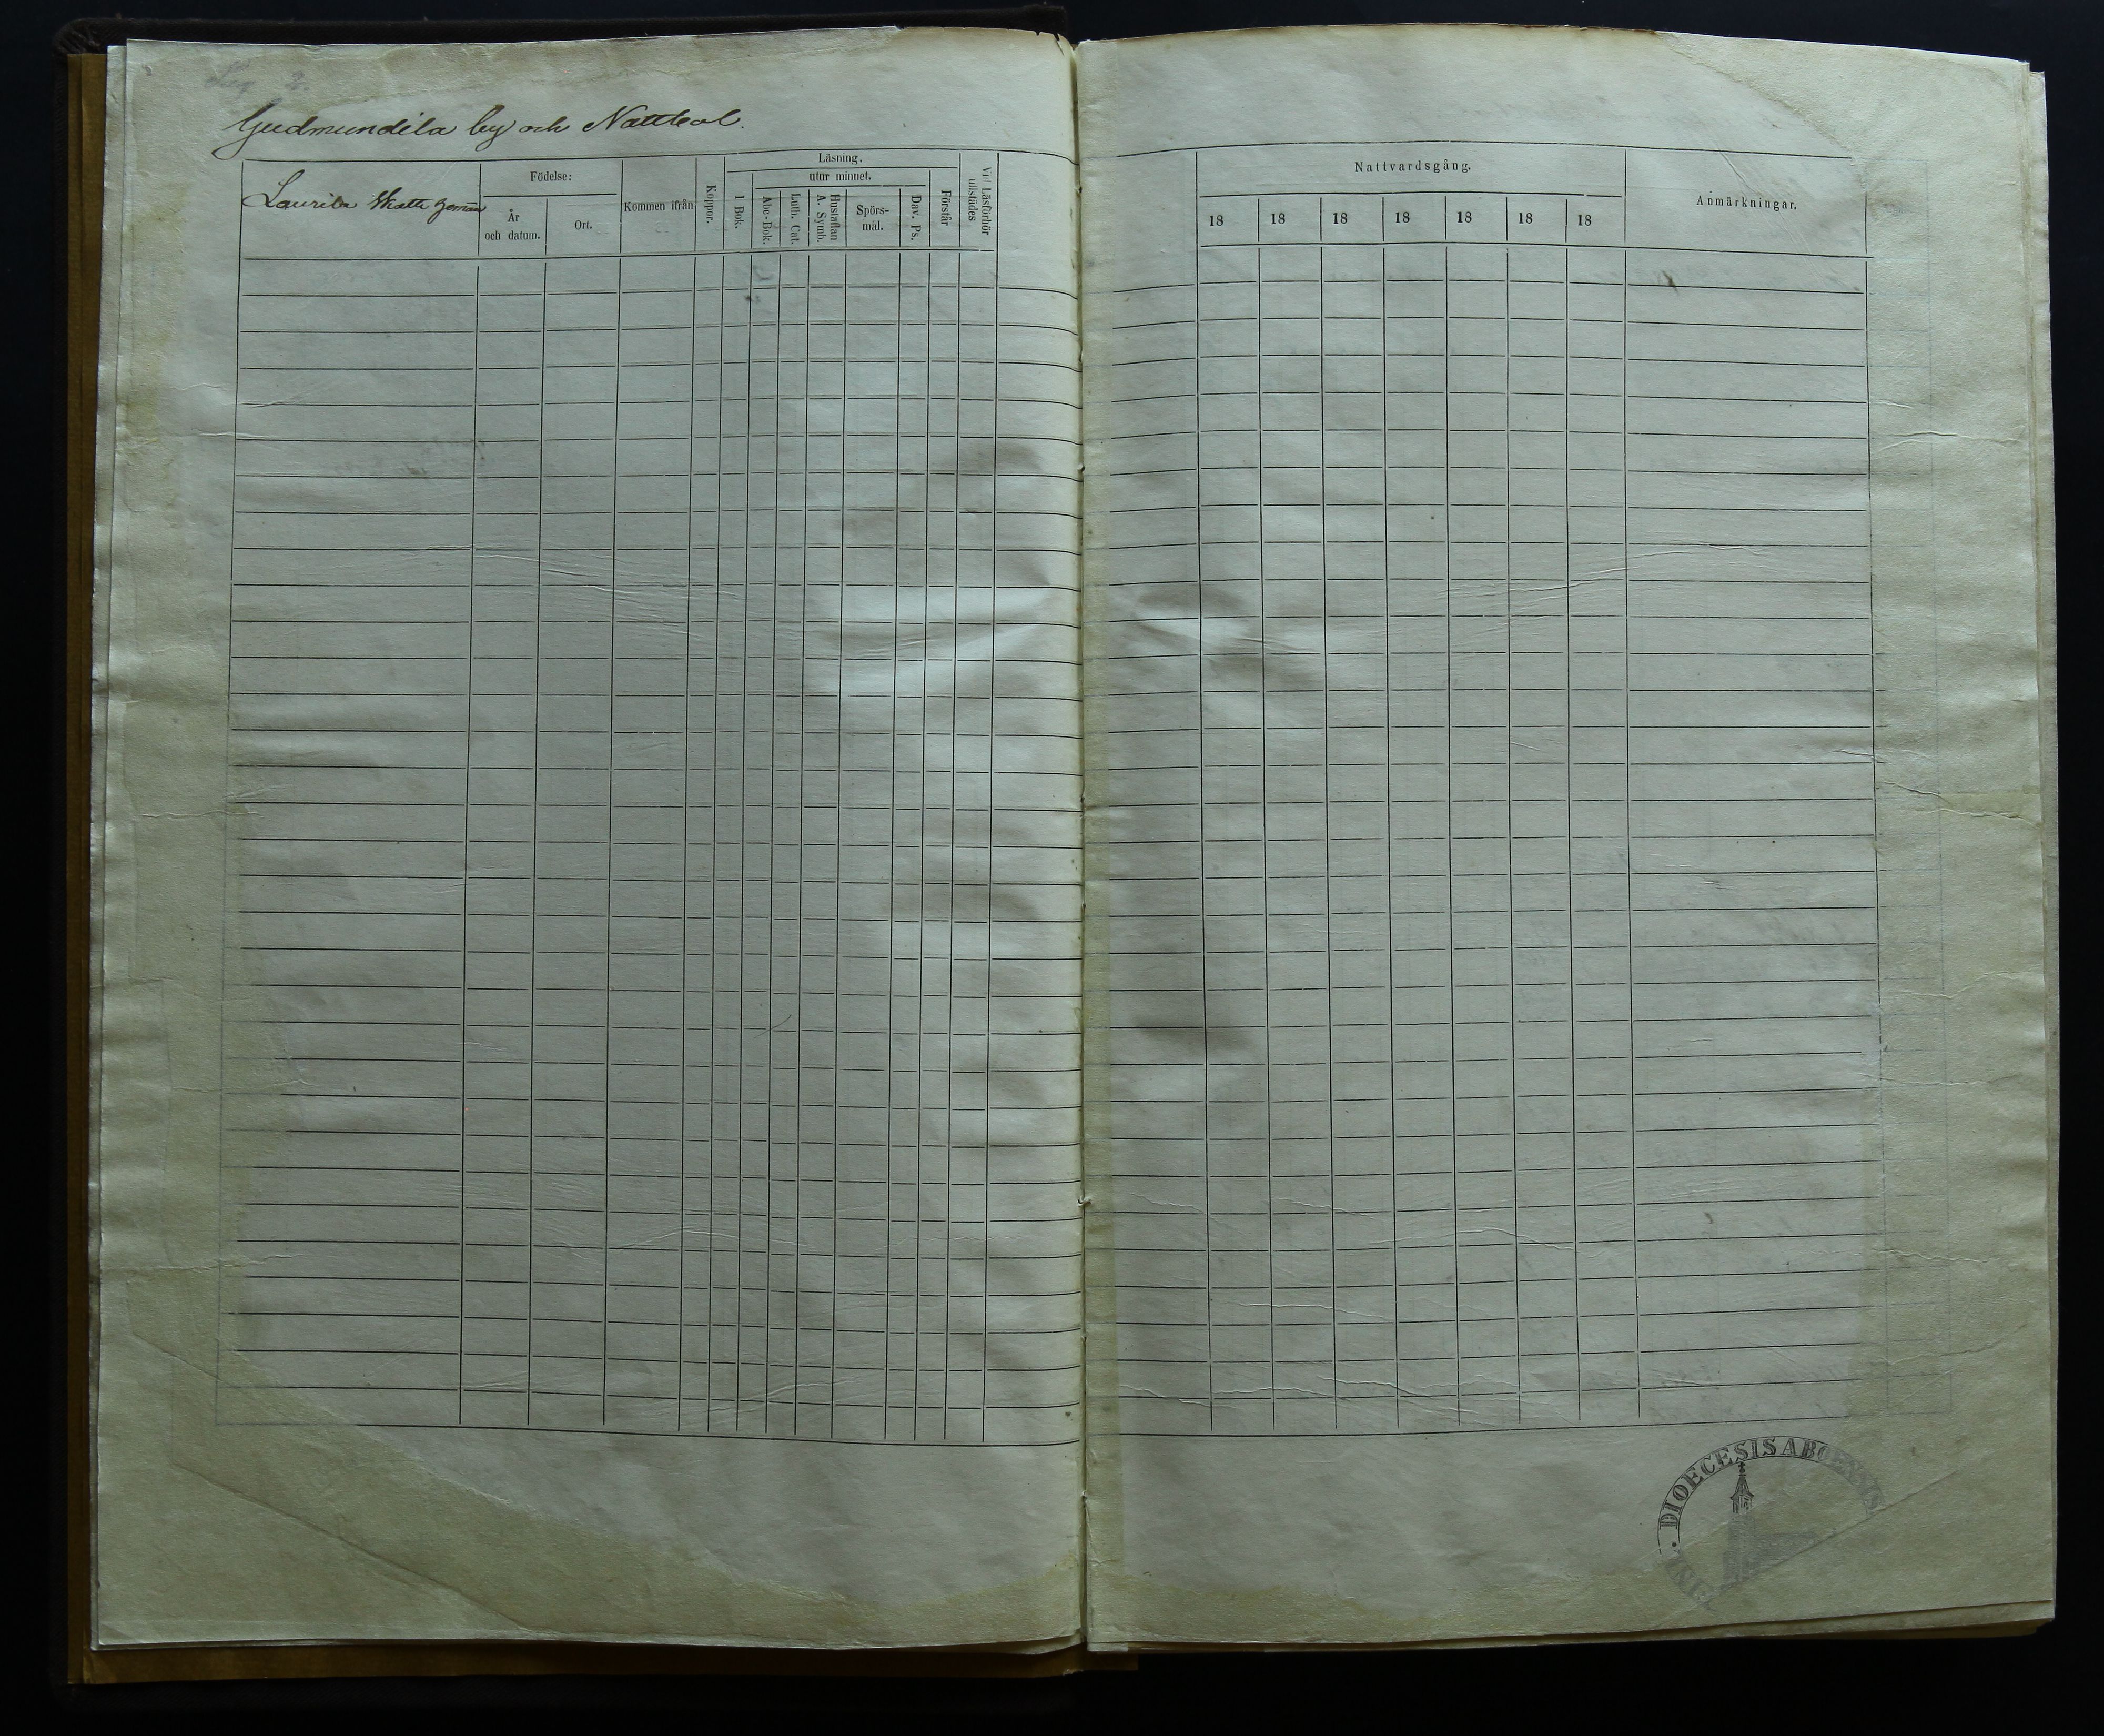 Gudmundila by och Nattkal.
Laurila Skatte
Födelse:
År
och datum.
Ort.
Kommen ifrån
Koppor.
Läsning.
utur minnet.
I Bok.
Abc-Bok.
Luth. Cat.
Hustaflan
A. Symb.
Spörs-
mål.
Dav. Ps.
Förstår
Vid Läsförhör
tillstädes
Nattvardsgång.
18 18 18 18 18 18 18
Anmärkningar.
DIOECESIS ABOENSIS